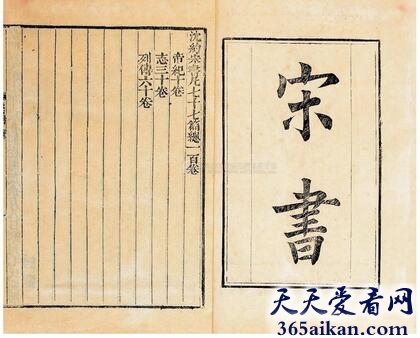 宋書
沈約宋書凡七十七篇總一百卷
帝紀十卷
志三十卷
列傳六十卷
天天爱看网
365aikan.com